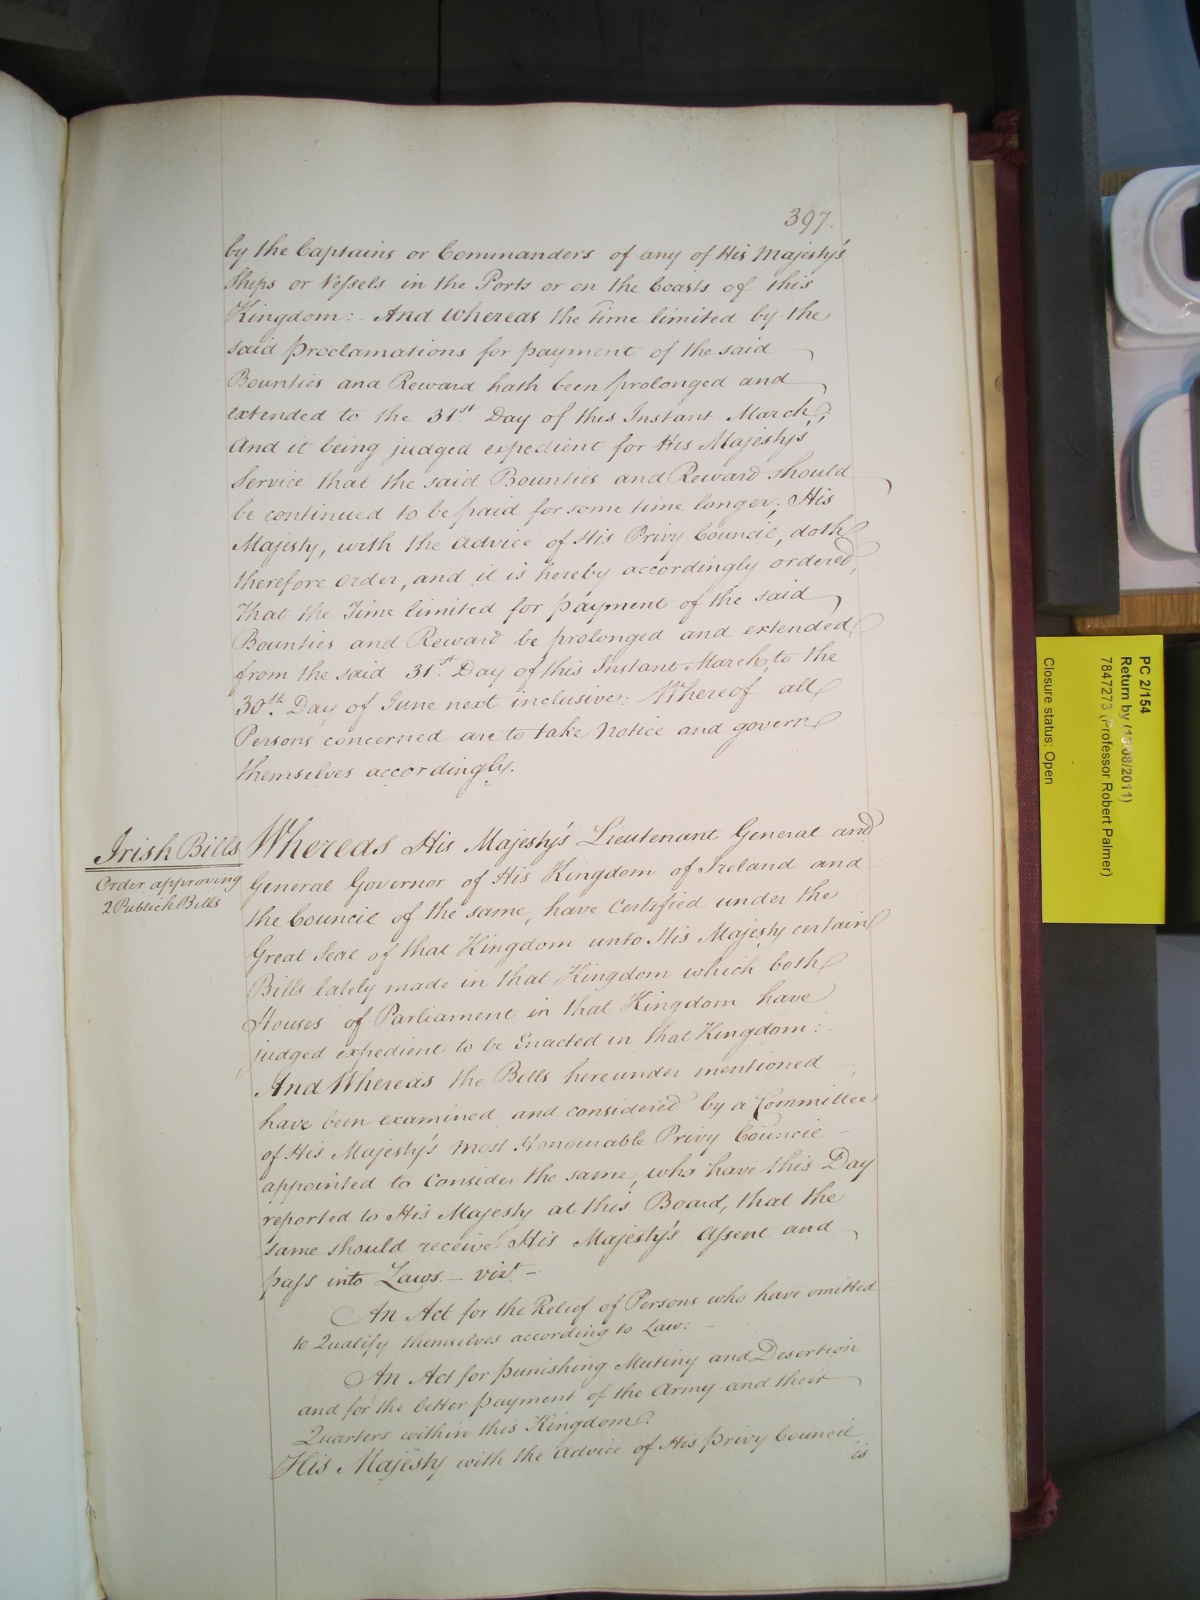 397.
by the Captains or Commanders of any of His Majesty's
Ships or Vessels in the Ports or on the Coasts of this
Kingdom: And Whereas the Time limited by the
said Proclamations for payment of the said
Bounties and Reward hath been prolonged and
extended to the 31st Day of this Instant March;
And it being judged expedient for His Majesty's
Service that the said Bounties and Reward should
be continued to be paid for some time longer; His
Majesty, with the Advice of His Privy Council, doth
therefore Order, and it is hereby accordingly ordered,
That the Time limited for payment of the said
Bounties and Reward be prolonged and extended
from the said 31st Day of this Instant March, to the
30th Day of June next inclusive: Whereof all
Persons concerned are to take Notice and govern
themselves accordingly.
Irish Bills
Order approving
2 Publick Bills
Whereas His Majesty's Lieutenant General and
General Governor of His Kingdom of Ireland and
the Council of the same, have Certified under the
Great Seal of that Kingdom unto His Majesty certain
Bills lately made in that Kingdom which both
Houses of Parliament in that Kingdom have
judged expedient to be Enacted in that Kingdom:
And Whereas the Bills hereunder mentioned
have been examined and considered by a Committee
of His Majesty's most Honourable Privy Council
appointed to Consider the same, who have this Day
reported to His Majesty at this Board, that the
same should receive His Majesty's Assent and
pass into Laws. - vizt. -
An Act for the Relief of Persons who have omitted
to Qualify themselves according to Law. -
An Act for punishing Mutiny and Desertion
and for the better payment of the Army and their
Quarters within this Kingdom.
His Majesty with the Advice of His privy Council
is
PC 2/154
Return by (13/08/2011)
7847273 (Professor Robert Palmer)
Closure status: Open